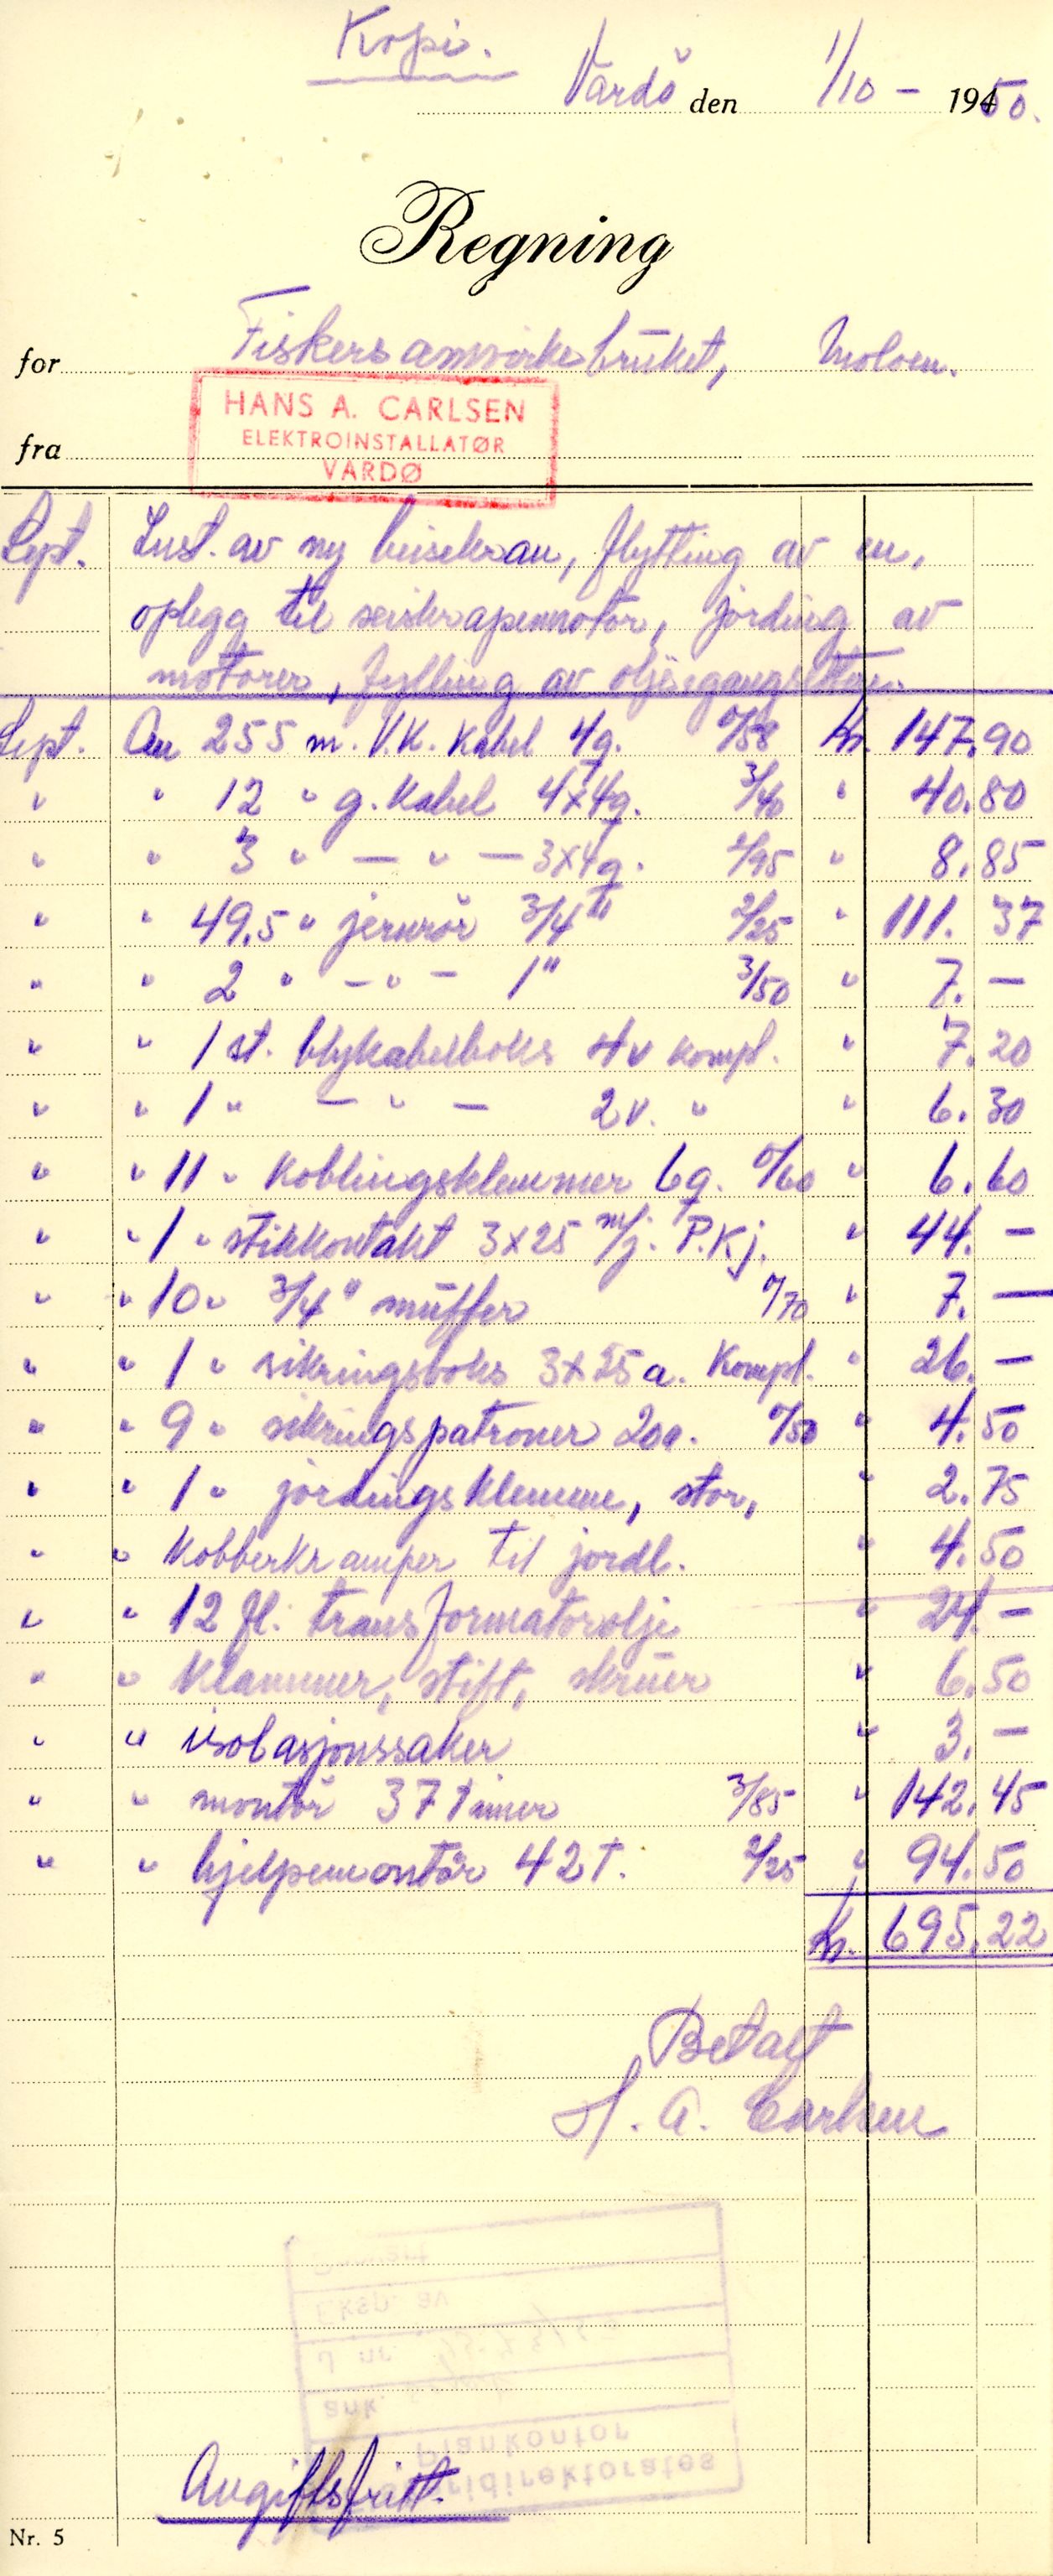 Kopi.
Vardö den 1/10 - 1950.
Regning
for Fiskersamvirkebruket, Moloen.
HANS A. CARLSEN
ELEKTROINSTALLATØR
VARDØ
fra
Sept. Inst. av ny heisekran, flytting av en,
oplegg til seiskrapemotor, jording av
motorer, fylling av oljeigangsettere.
Sept. An 255 m. V.K. Kabel 4q. 0/58 kr. 147.90
" " 12 " g. Kabel 4x4q. 3/40 " 40.80
" " 3 " — " — 3x4q. 2/95 " 8.85
" " 49,5 " jernrör 3/4" 2/25 " 111.37
" " 2 " - " - 1" 3/50 " 7. —
" " 1 st. blykabelboks 4v kompl. " 7.20
" " 1 " — " — 2v. " " 6.30
" " 11 " Koblingsklemmer 6q. 0/60 " 6.60
" " 1 " stikkontakt 3x25 m/j. P.Kj. " 44. —
" " 10 " 3/4" muffer 0/70 " 7. —
" " 1 " sikringsboks 3x25a. Kompl. " 26. —
" " 9 " sikringspatroner 20a. 0/50 " 4.50
" " 1 " jordingsklemme, stor, " 2.75
" " Kobberkramper til jordl. " 4.50
" " 12 fl. transformatorolje " 24. —
" " Klammer, stift, skruer " 6.50
" " isolasjonssaker " 3. —
" " montör 37 timer 3/85 " 142.45
" " hjelpemontör 42 t. 2/25 " 94.50
kr. 695.22
Betalt
H. A. Carlsen
Eksp. av
J nr.
ank.
Plankontor
Avgiftsfritt.
Nr. 5